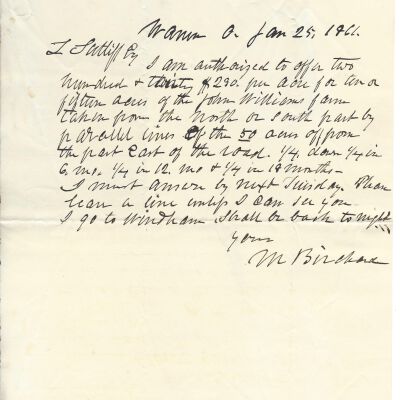 Warren O. Jan 25, 1861.
L Sutliff Esq
I am authorized to offer two
hundred & thirty $230. per acre for ten or
fifteen acres of the John Williams farm
taken from the North or South part by
parallel lines of the 50 acres off from
the part East of the road. 1/4 down 1/4 in
6 mo. 1/4 in 12 mo & 1/4 in 18 months -
I must answer by next Tuesday. Please
leave a line unless I can see you
I go to Windham Shall be back to night
Yours
M Birchard